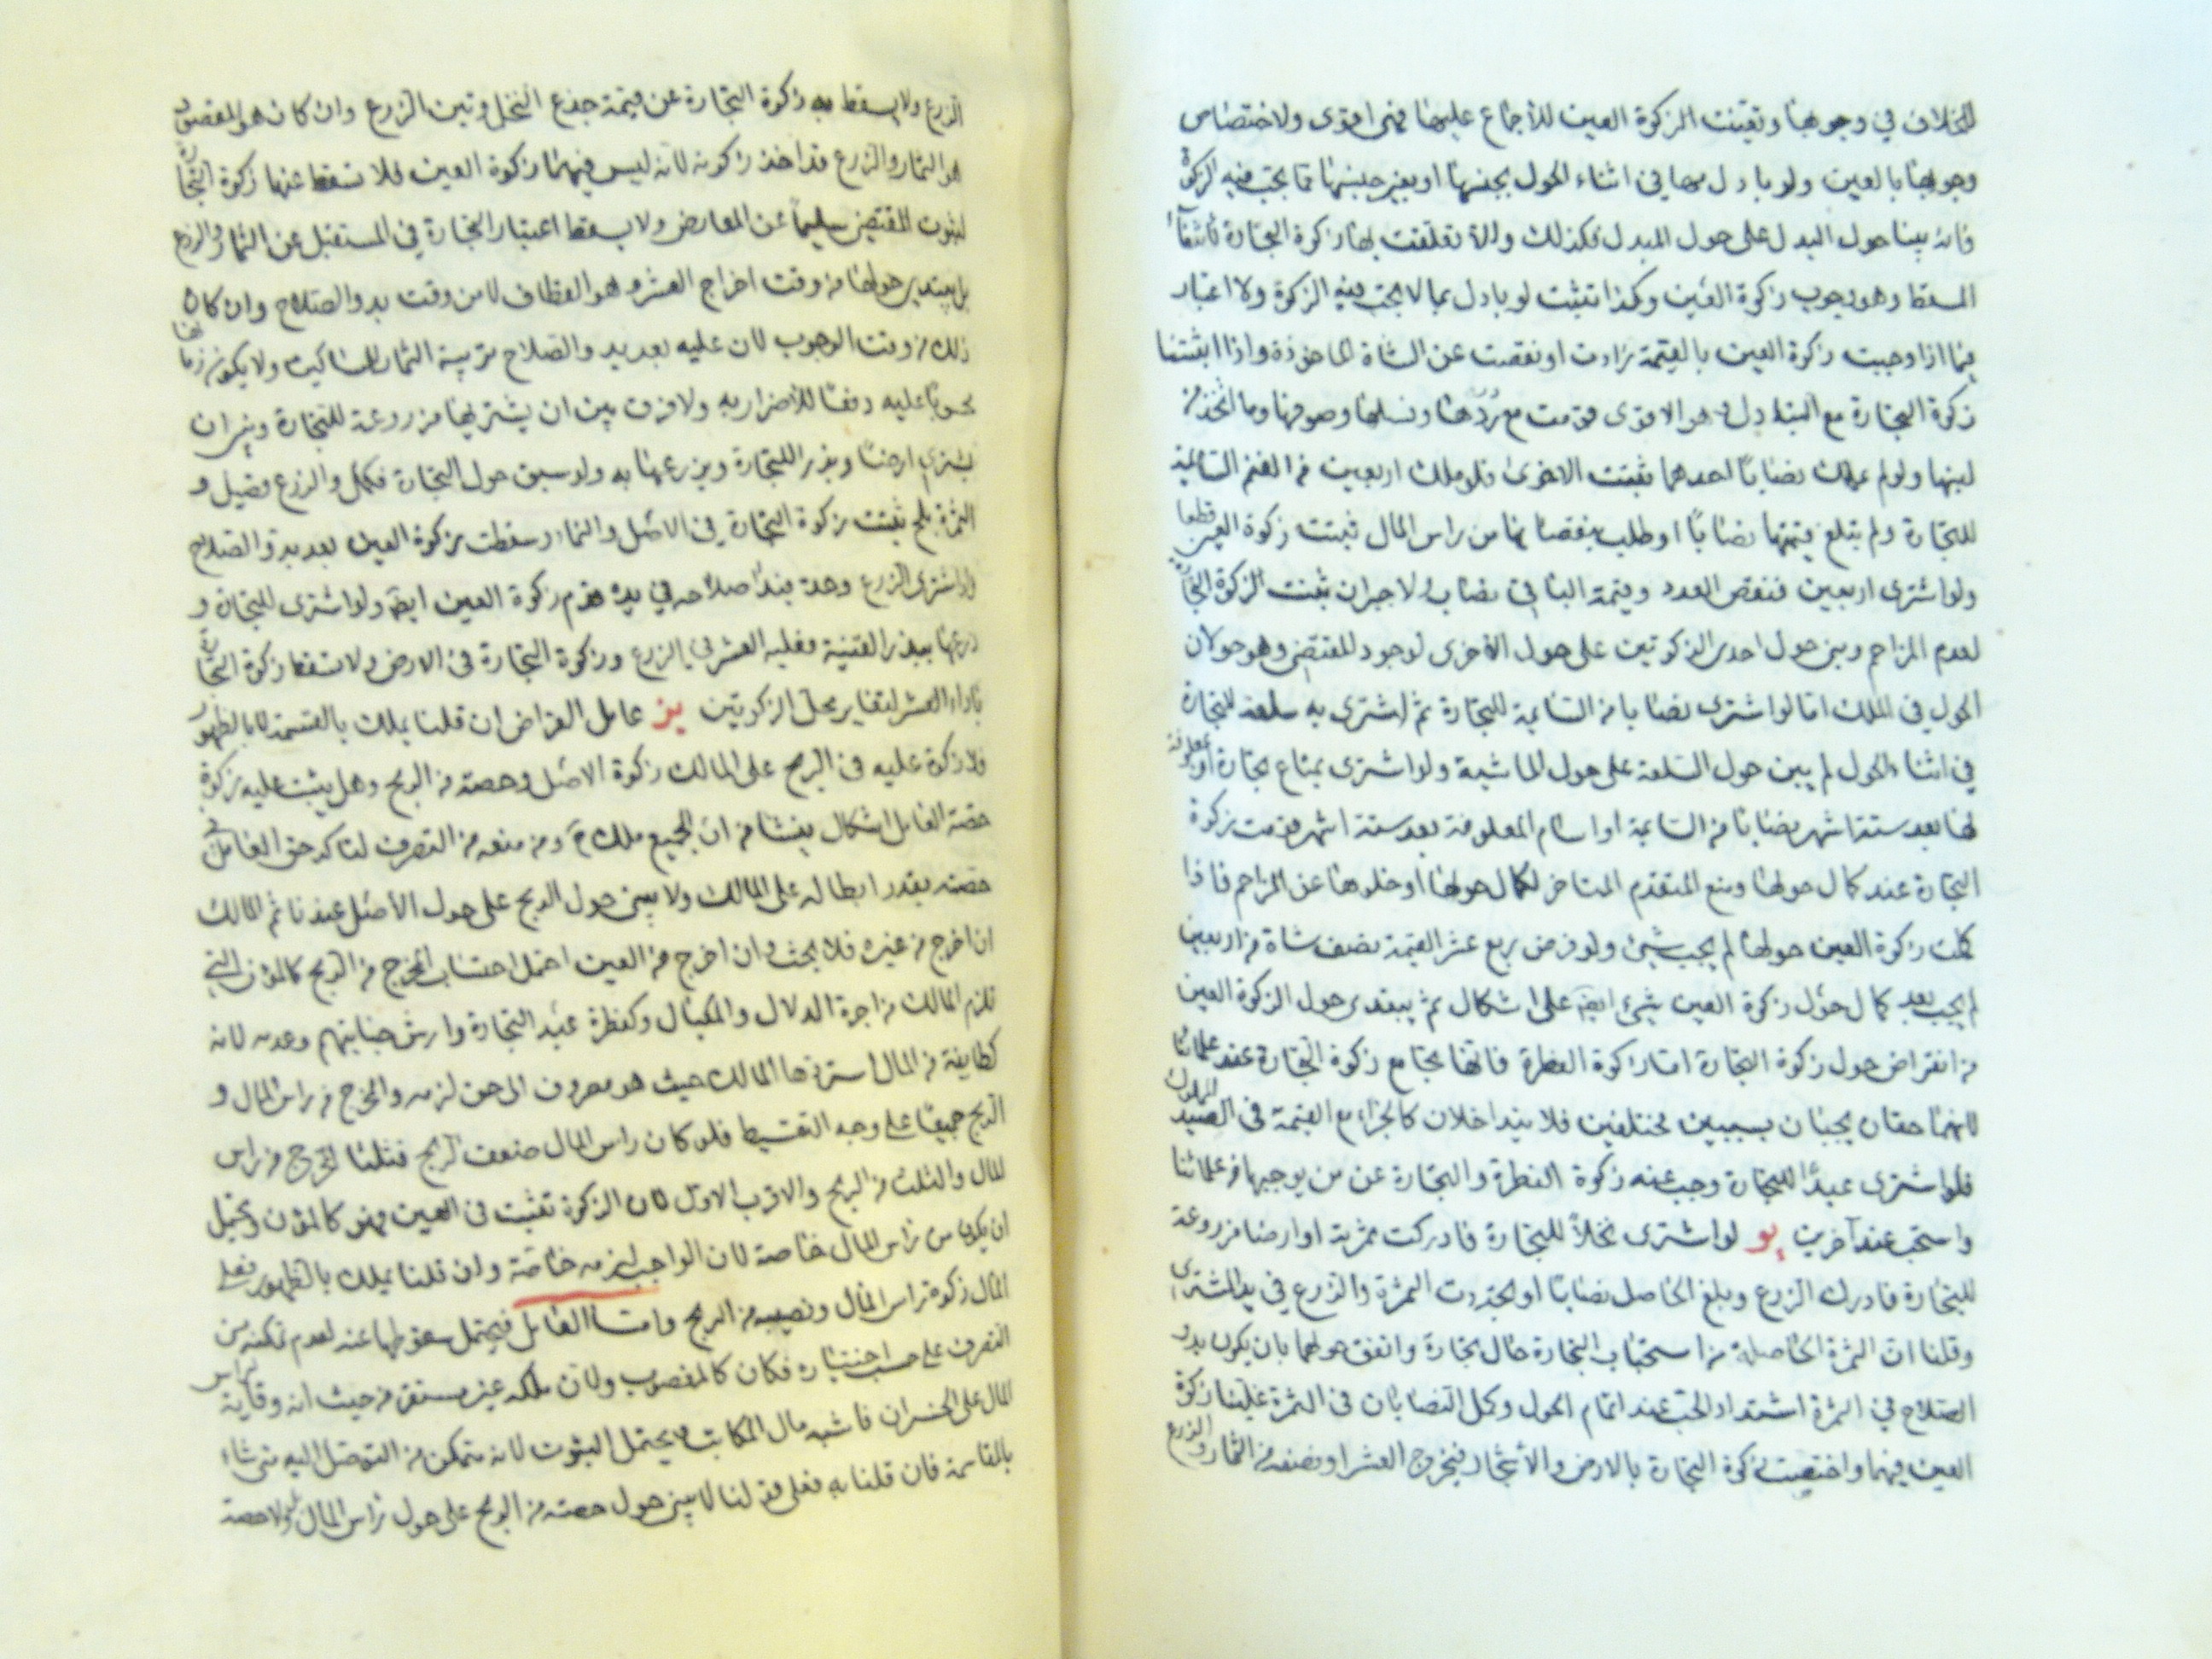 للخلاف في وجوبها وتعينت الزكوة العين للاجماع عليها فهى اقوى ولاختصاص
وجوبها بالعين ولو بادل بها في اثناء الحول بجنسها او بغير جنسها مما يجب فيه الزكوة
فانه بينا حول البدل على حول المبدل فكذلك والا تعلقت بها زكوة التجارة
المسقط وهو وجوب زكوة العين وكذا تثبت لو بادل بما لا يجب فيه الزكوة ولا اعتبار
فيما اذا وجبت زكوة العين بالقيمة زادت او نقصت عن الشاة الماخوذة واذا اثبتنا
زكوة التجارة مع التبادل وهو الاقوى قومت مع درها ونسلها وصوفها وما اتخذ من
لبنها ولو لم يملك نصابا احدهما ثبتت الاخرى فلو ملك اربعين من الغنم السائمة
للتجارة ولم يبلغ قيمتها نصابا او طلب بنقصانها من راس المال ثبتت زكوة العين قطعا
ولو اشترى اربعين فنقص العدد وقيمة الباقي نصاب لا جبران ثبتت الزكوة التجارة
لعدم المزاحم وبنى حول احدى الزكوتين على حول الاخرى لوجود المقتضي وهو حولان
الحول في الملك اما لو اشترى نصابا من السائمة للتجارة ثم اشترى به سلعة للتجارة
في اثناء الحول لم يبن حول السلعة على حول الماشية ولو اشترى بمتاع تجارة او معلوفة
لها بعد ستة اشهر نصابا من السائمة او اسام المعلوفة بعد ستة اشهر قومت زكوة
التجارة عند كمال حولها ومنع المتقدم المتاخر لكمال حولها وخلوها عن المزاحم فاذا
كملت زكوة العين حولها لم يجب شيئ ولو فرض ربع عشر القيمة نصف شاة من اربعين
لم يجب بعد كمال حول زكوة العين شيئ ايضا على اشكال ثم يبتدى حول الزكوة العين
من انقراض حول زكوة التجارة اما زكوة الفطرة فانها تجامع زكوة التجارة عند علمائنا
لانهما حقان يجبان بسببين مختلفين فلا يتداخلان كالجزاء مع القيمة في الصيد المملوك
فلو اشترى عبدا للتجارة وجب عنه زكوة الفطرة والتجارة عن من يوجبها من علمائنا
واستحب عند آخرين يو لو اشترى نخلاً للتجارة فادركت ثمرته او ارضا مزروعة
للتجارة فادرك الزرع وبلغ الحاصل نصابا او تجددت الثمرة والزرع في يد المشترى
وقلنا ان الثمرة الحاصلة من استحباب التجارة حال تجارة واتفق حولهما بان يكون بدو
الصلاح في الثمرة اشتداد الحب عند اتمام الحول وكمل النصابان في الثمرة غلبنا زكوة
العين فيهما واختصت زكوة التجارة بالارض والاشجار فيخرج العشر او نصفه من الثمار والزرع
الزرع ولا يسقط به زكوة التجارة عن قيمة جذع النخل وتبن الزرع وان كان هو المقصود
هو الثمار والزرع قد اخذ زكوته لانه ليس فيهما زكوة العين فلا تسقط عنها زكوة التجارة
لثبوت المقتضي سليما عن المعارض ولا يسقط اعتبار التجارة في المستقبل عن الثمار والزرع
بل يبتدي حولها من وقت اخراج العشر وهو القطاف لا من وقت بدو الصلاح وان كان
ذلك من وقت الوجوب لان عليه بعد بدو الصلاح تربية الثمار للمساكين ولا يكون زمانها
محسوبا عليه دفعا للاضرار به ولا فرق بين ان يشتريها مزروعة للتجارة وبين ان
يشتري ارضا وبذرا للتجارة ويزرعها به ولو سبق حول التجارة فكمل والزرع فصيل و
الثمرة بلح ثبتت زكوة التجارة في الاصل والنماء وسقطت زكوة العين بعد بدو الصلاح
ولو اشترى الزرع وحده فبدا صلاحه في يده قدم زكوة العين ايضا ولو اشترى للتجارة و
زرعها ببذر القنية فعليه العشر في الزرع وزكوة التجارة في الارض ولا تسقط زكوة التجارة
باداء العشر لتغاير محل الزكوتين يز عامل القراض ان قلنا يملك بالقسمة لا بالظهور
فلا زكوة عليه في الربح على المالك زكوة الاصل وحصته من الربح وهل يثبت عليه زكوة
حصة العامل اشكال ينشا من ان الجميع ملكه ومن منعه من التصرف لتاكد حق العامل في
حصته بقدر ابطاله على المالك ولا يبنى حول الربح على حول الاصل عندنا ثم المالك
ان اخرج من غيره فلا بحث وان اخرج من العين احتمل احتساب المخرج من الربح كالمؤن التي
تلزم المالك من اجرة الدلال والمكيال وكفطرة عبد التجارة وارش جنايتهم وعدمه لانه
كطايفة من المال استردها المالك حيث هو مصروف الى حق لزمه والمخرج من راس المال و
الربح جميعا على وجه التقسيط فلو كان راس المال ضعف الربح فثلثا المخرج من راس
المال والثلث من الربح والاقرب الاول لان الزكوة تثبت في العين فهو كالمؤن ويحتمل
ان يكون من راس المال خاصة لان الواجب لزمه خاصة وان قلنا يملك بالظهور فعلى
المال زكوة راس المال ونصيبه من الربح واما العامل فيحتمل سقوطها عنه لعدم تمكنه من
التصرف على حسب اختياره فكان كالمغصوب ولان ملكه غير مستقر من حيث انه وقاية لراس
المال على الخسران فاشبه مال المكاتب ويحتمل الثبوت لانه متمكن من التوصل اليه متى شاء
بالمقاسمة فان قلنا به فعلى قولنا لا يبنى حول حصته من الربح على حول راس المال حصته